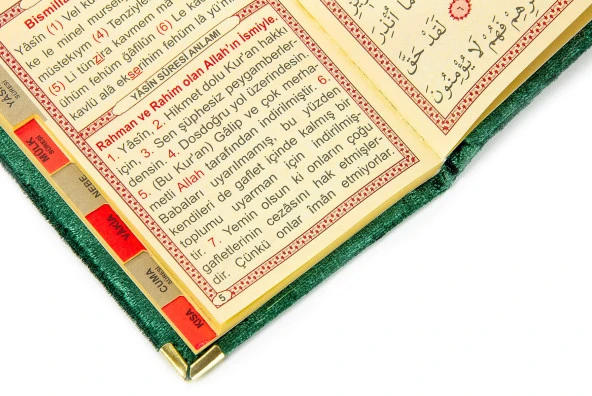 Bismillâ
Yâsîn (1) Vel ku
ke le minel mursel
müstekym (4) Tenzîle
(5) Li tünzira kavmem mâ
ühüm fehüm ğâfilûn (6) Le ka
kavlü alâ ekserihim fehüm lâ yü'm
YÂSİN SÛRESİ ANLAMI
Rahman ve Rahim olan Allah'ın ismiyle.
1. Yâsîn, 2. Hikmet dolu Kur'an hakkı
için, 3. Sen şüphesiz peygamberler-
densin. 4. Dosdoğru yol üzerindesin.
5. (Bu Kur'an) Gâlip ve çok merha-
metli Allah tarafından indirilmiştir. 6.
Babaları uyarılmamış, bu yüzden
kendileri de gaflet içinde kalmış bir
toplumu uyarman için indirilmiş-
tir. 7. Yemin olsun ki onların çoğu
gafletlerinin cezâsını hak etmişler-
dir. Çünkü onlar îmân etmiyorlar.
5
YÂSİN
SURESİ
MÜLK
SURESİ
NEBE
VAKIA
CUMA
SURESİ
KISA
مَا أُنْذِرَ
لَقَدْ حَقَّ
فَهُمْ لَا يُؤْمِنُونَ